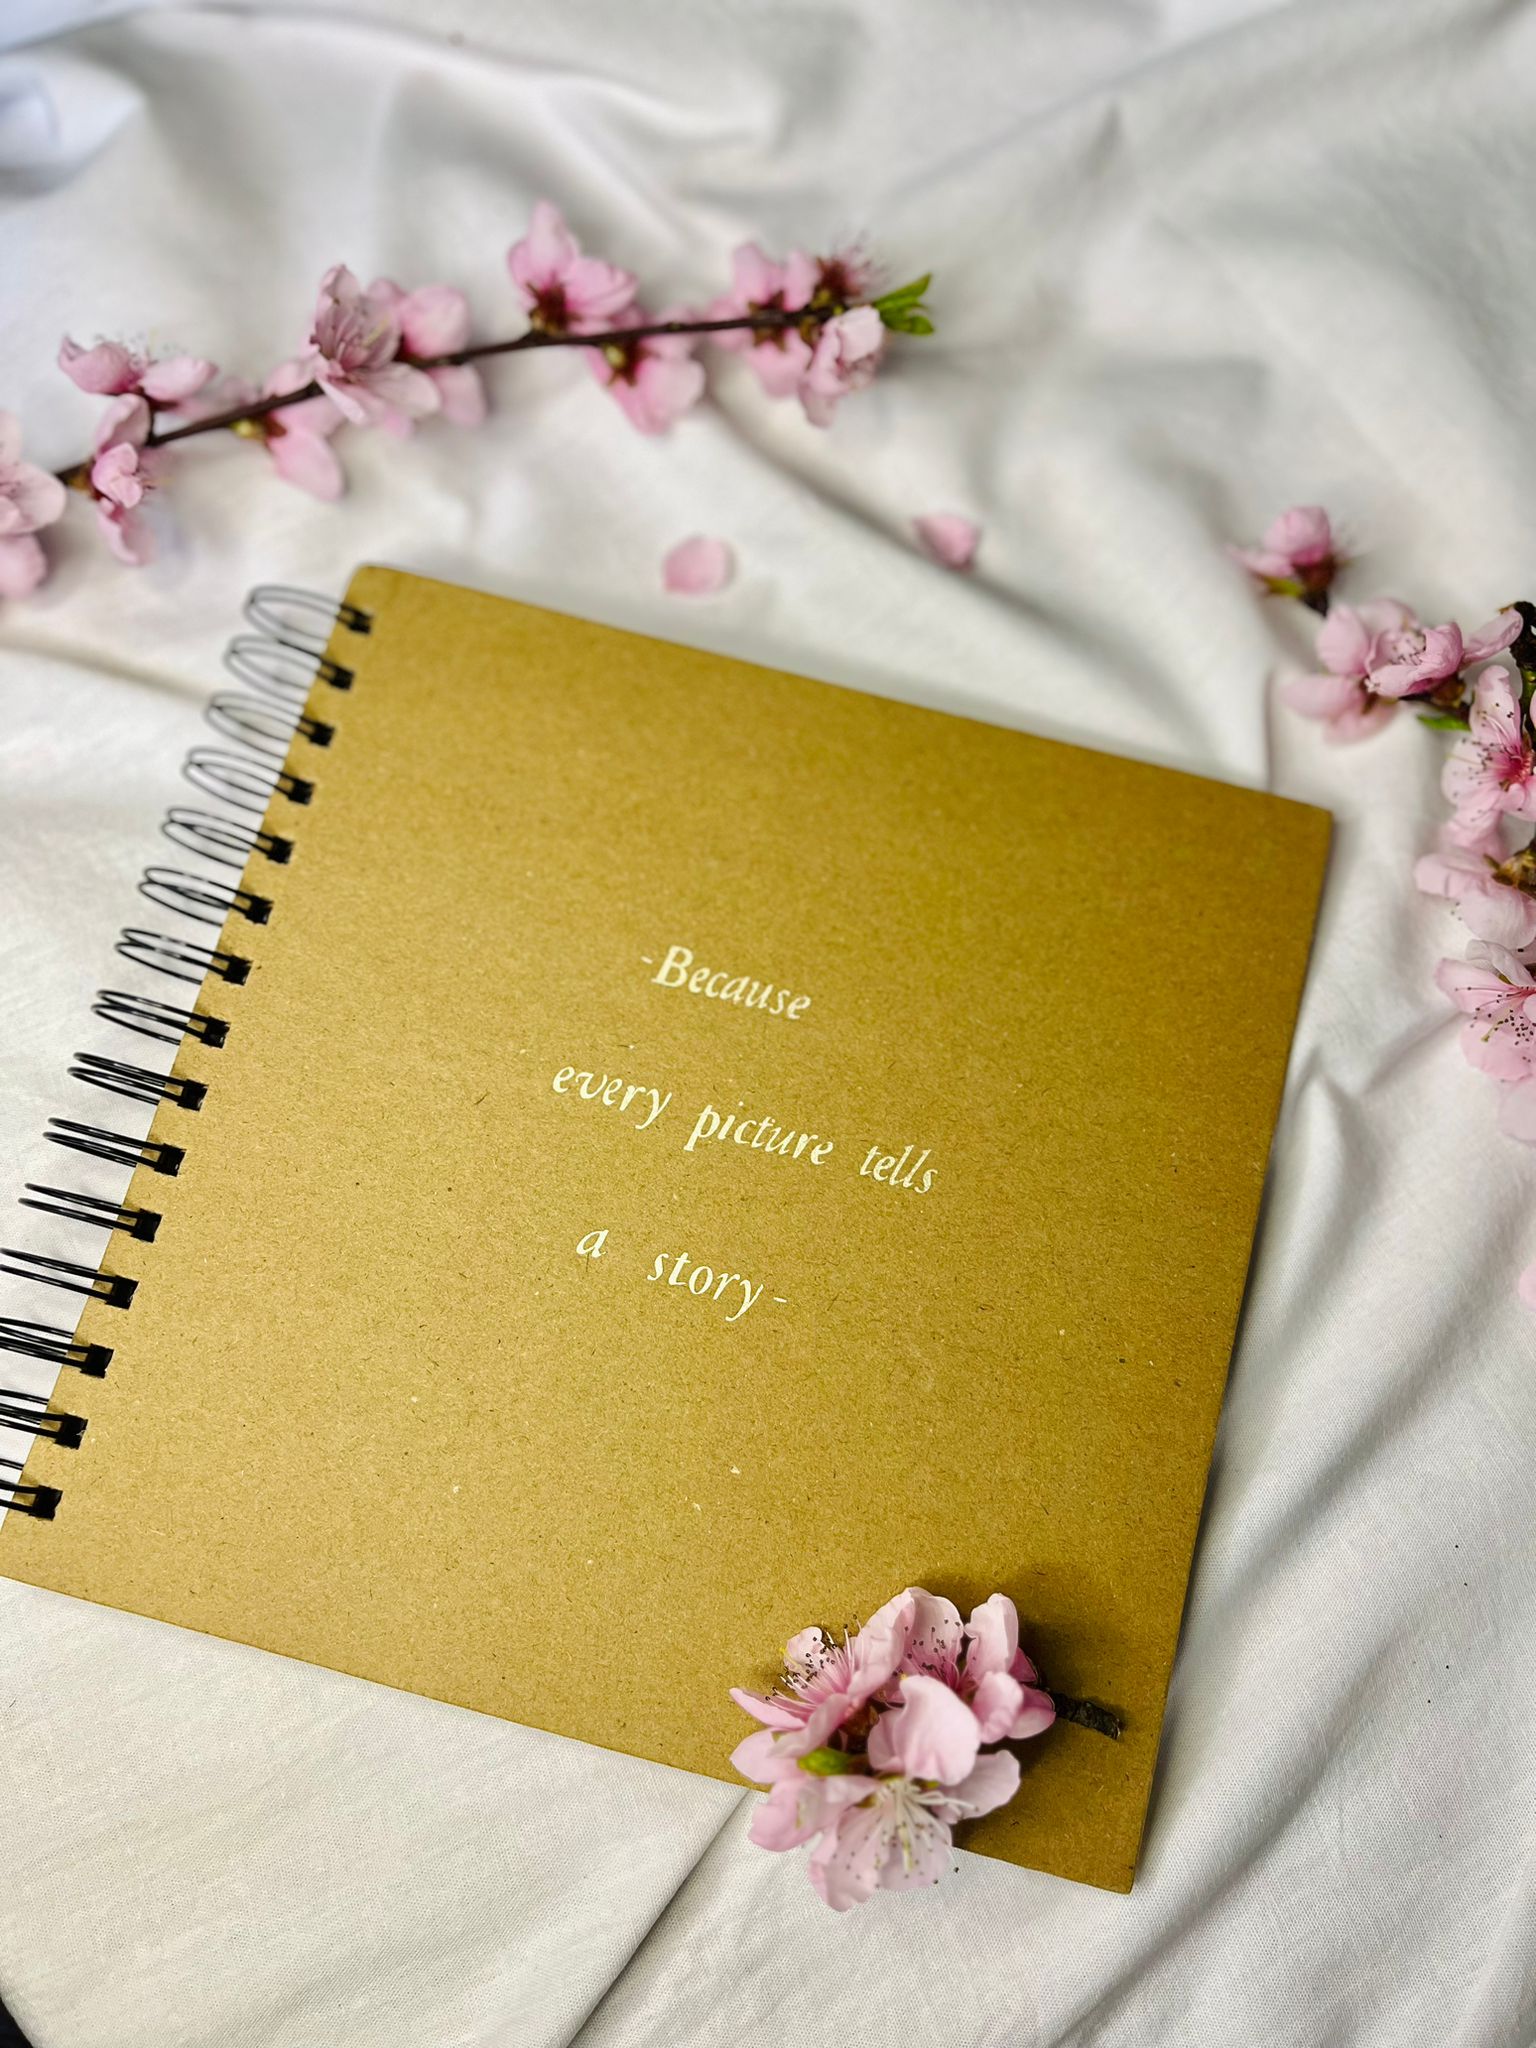 -Because
every picture tells
a story-